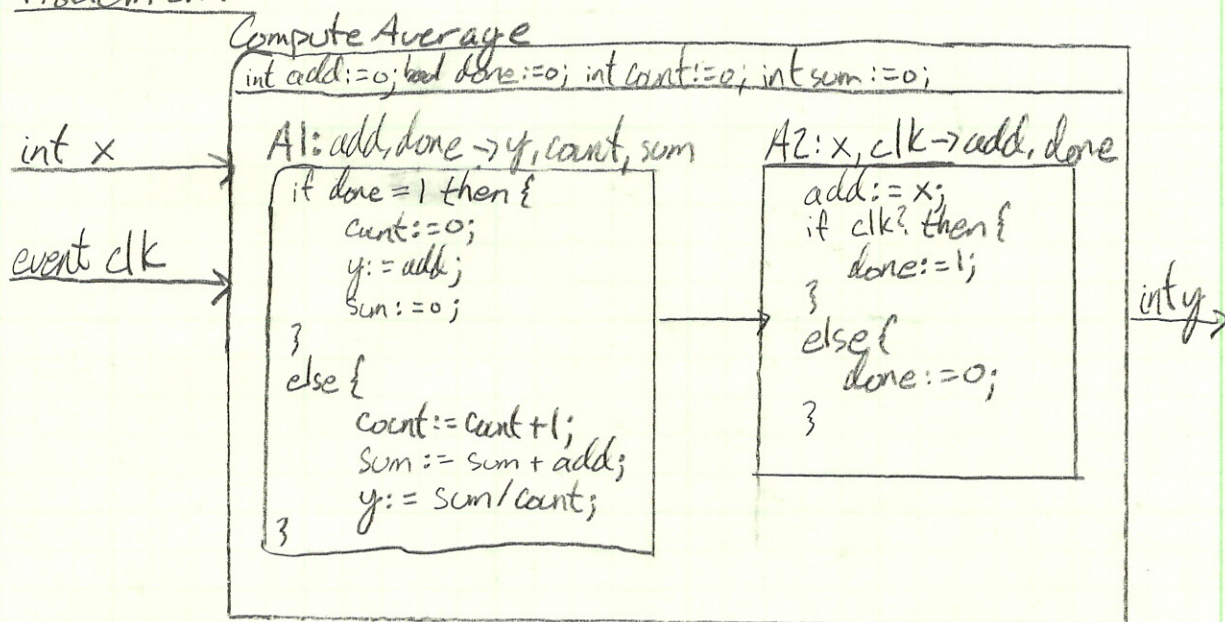 Compute Average
int add:=0; bool done:=0; int count:=0; int sum:=0;
int x
event clk
A1: add, done → y, count, sum
if done = 1 then {
count:=0;
y:= add;
sum:=0;
}
else {
count:= count +1;
sum := sum + add;
y:= sum/count;
}
A2: x, clk → add, done
add:= x;
if clk? then {
done:=1;
}
else {
done:=0;
}
int y